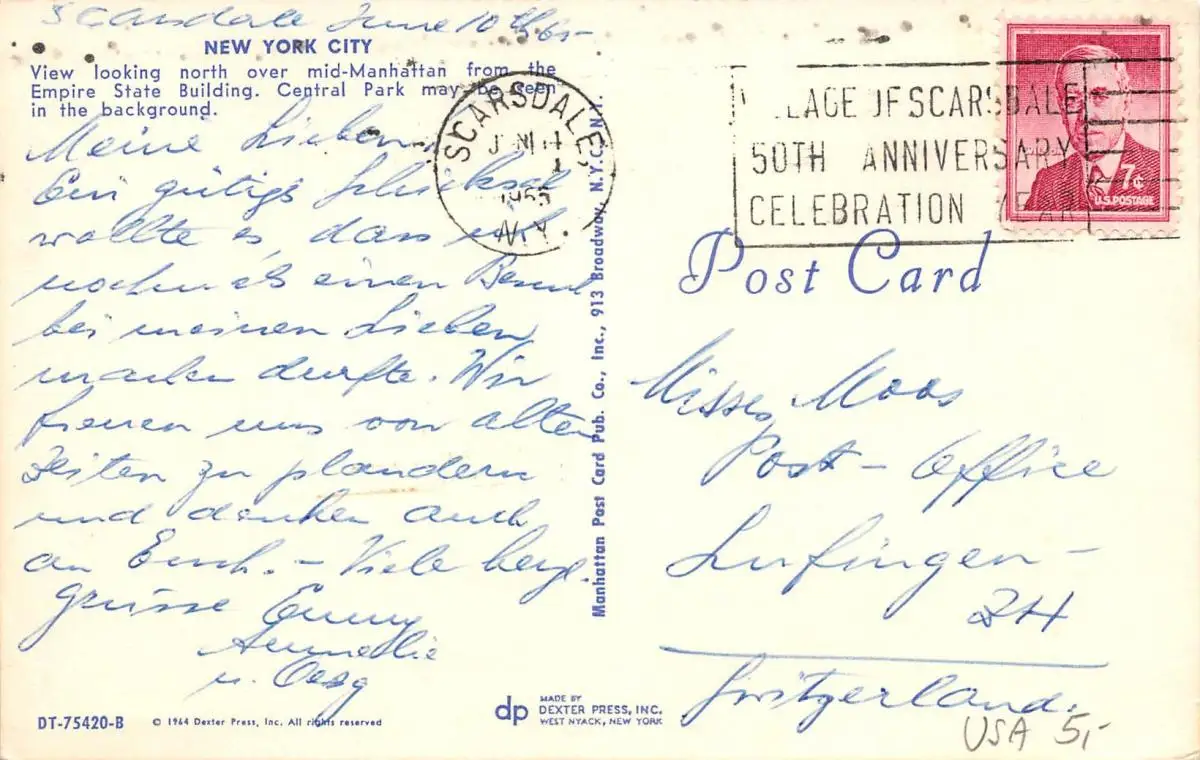 Scarsdale June 10th 65
NEW YORK CITY
View looking north over mid-Manhattan from the
Empire State Building. Central Park may be seen
in the background.
Meine Lieben
Ein gütigs Schicksal
wollte es dass ich
nochmals einen Besuch
bei meinen Lieben
machen durfte. Wir
freuen uns von alten
Zeiten zu plaudern
und denken auch
an Euch. – Viele herzl.
Grüsse Emmy
Annelie
u.
DT-75420-B
© 1964 Dexter Press, Inc. All rights reserved
dp
MADE BY
DEXTER PRESS, INC.
WEST NYACK, NEW YORK
Manhattan Post Card Pub. Co., Inc., 913 Broadway, N.Y.C., N.Y.
SCARSDALE,
N.Y.
OF SCARSDALE
50TH ANNIVERSARY
CELEBRATION YEAR
7¢
U.S. POSTAGE
Post Card
Misses Moos
Post-Office
Lufingen –
ZH
Switzerland.
USA 5,-